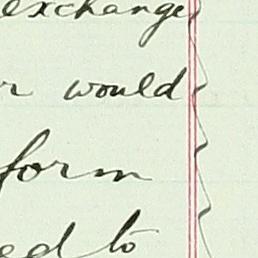 exchange
would
form
ed to